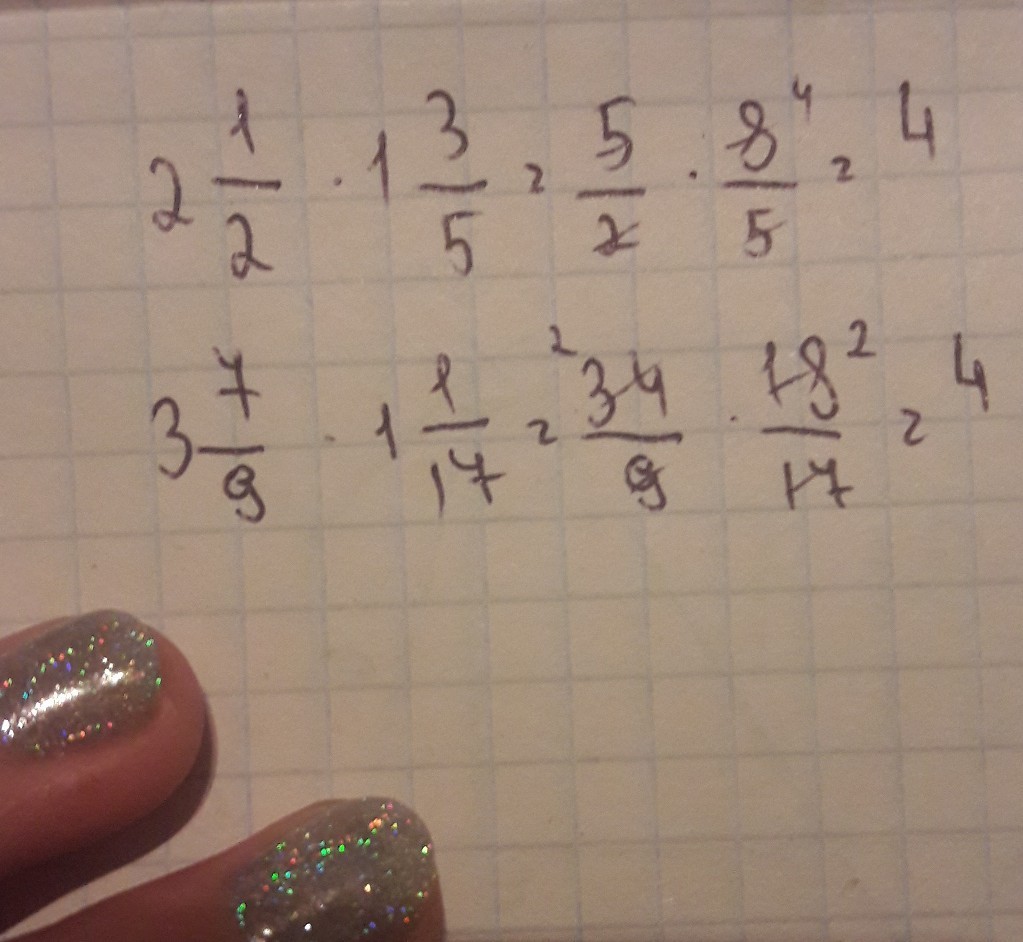 2 1/2 · 1 3/5 = 5/2 · 8⁴/5 = 4
3 7/9 · 1 1/17 = ²34/9 · 18²/17 = 4